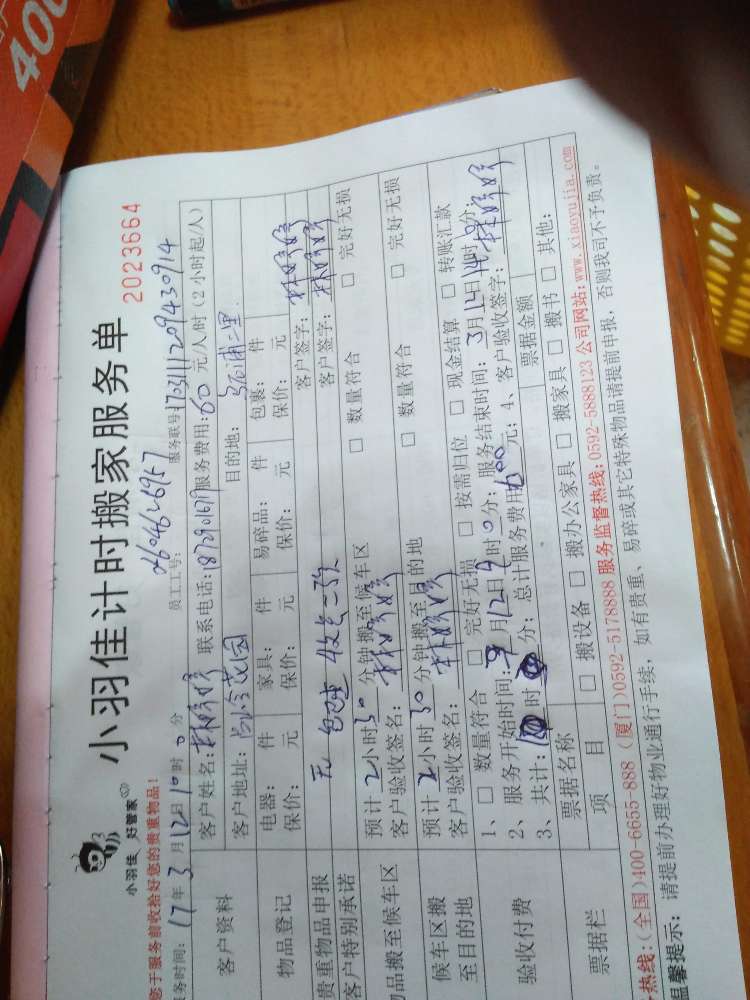 400
小羽佳 好管家
小羽佳计时搬家服务单
2023664
您于服务前收拾好您的贵重物品!
员工工号:
服务联号:170311120943 0914
服务时间: 17年3月12日10时0分
客户资料
客户姓名: 联系电话: 服务费用:60元/人/时(2小时起/人)
客户地址: 花园 目的地: 二里
物品登记
电器: 件 家具: 件 易碎品: 件 包裹: 件
保价: 元 保价: 元 保价: 元 保价: 元
贵重物品申报
无 客户签字:
客户特别承诺
客户签字:
物品搬至候车区
预计2小时30分钟搬至候车区 □ 数量符合 □ 完好无损
客户验收签名:
候车区搬至目的地
预计2小时30分钟搬至目的地 □ 数量符合 □ 完好无损
客户验收签名:
验收付费
1、□ 数量符合 □ 完好无损 □ 按需归位 □ 现金结算 □ 转账汇款
2、服务开始时间: 月12日9时0分; 服务结束时间:3月12日 时 分
3、共计: 时 分; 总计服务费用600元; 4、客户验收签字:
票据栏
票据名称 票据金额
项目 □ 搬设备 □ 搬办公家具 □ 搬家具 □ 搬书 □ 其他:
热线:(全国)400-6655-888 (厦门)0592-5178888 服务监督热线:0592-5888123 公司网站:www.xiaoyujia.com
温馨提示: 请提前办理好物业通行手续,如有贵重、易碎或其它特殊物品请提前申报,否则我司不予负责。